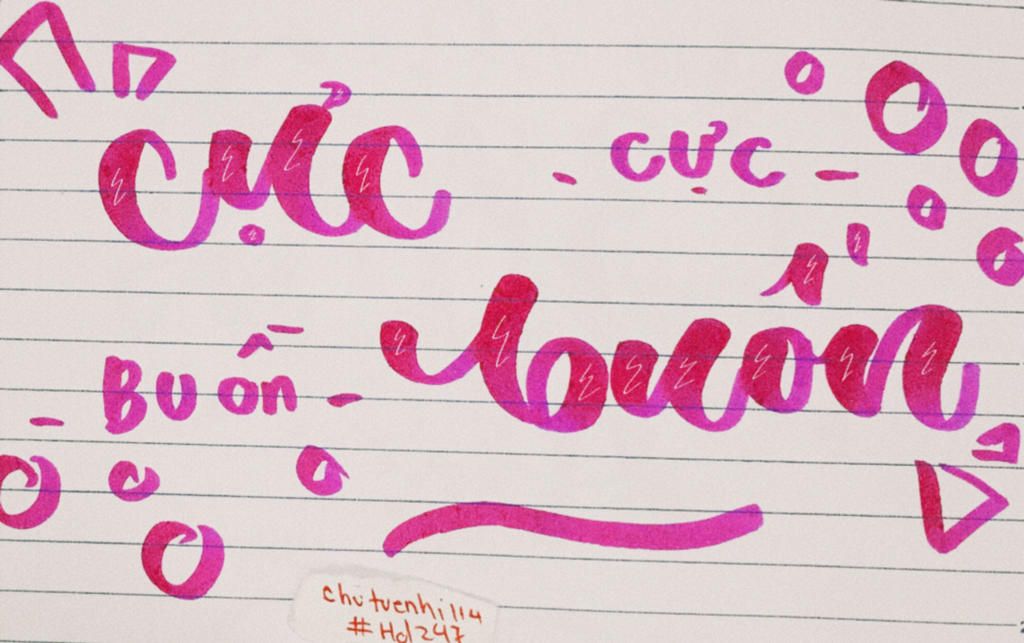 cực
- cực -
buồn
- Buồn -
chutuenhi114
#Hd247